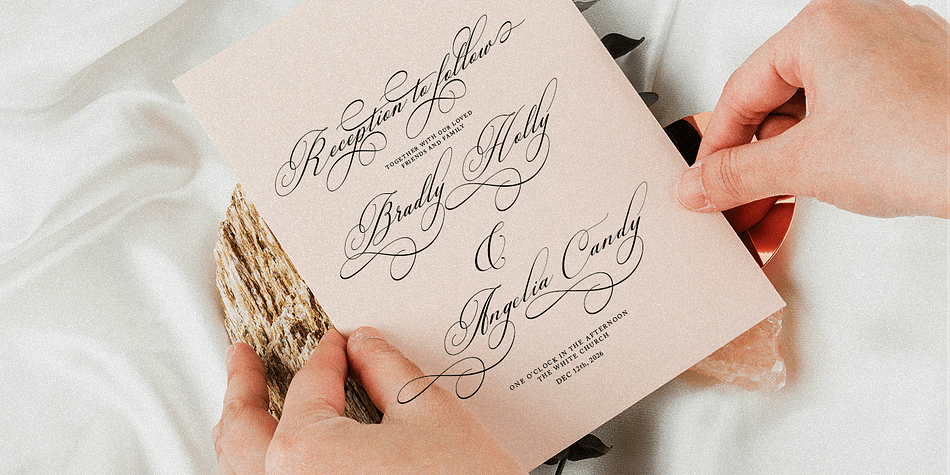 Reception to follow
TOGETHER WITH OUR LOVED
FRIENDS AND FAMILY
Bradly Holly
&
Angelia Candy
ONE O'CLOCK IN THE AFTERNOON
THE WHITE CHURCH
DEC 12th, 2026